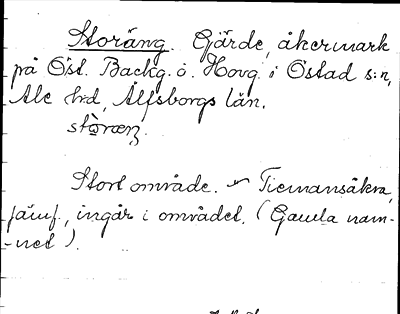 Storäng. Gärde, åkermark
på Öst. Backg. o. Hovg. i Östad s:n,
Ale hd, Älfsborgs län.
Stort område. Tiemansåkra,
jämf., ingår i området. (Gamla nam-
-net).